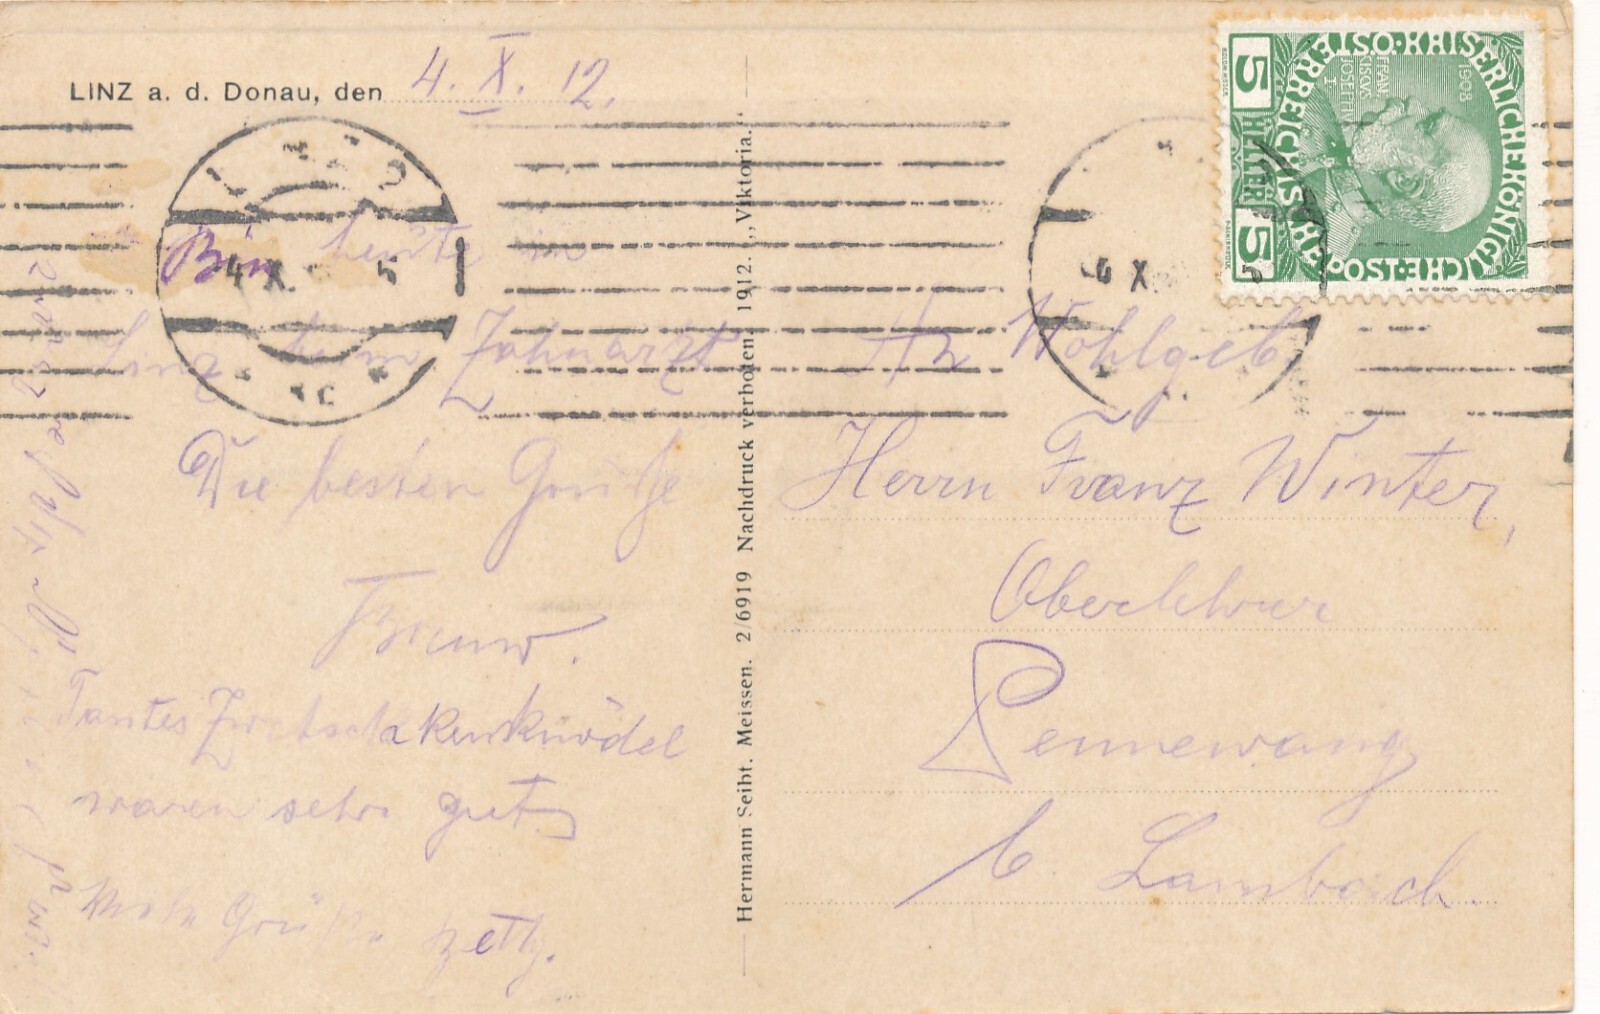 LINZ a. d. Donau, den 4. X. 12.
Bin heute in
Linz beim Zahnarzt
Die besten Grüße
Tantes Zwetschkenknödel
waren sehr gut
Grüße
An Wohlgeb
Herrn Franz Winter,
Oberlehrer
Pennewang
b. Lambach.
Hermann Seibt. Meissen. 2/6919 Nachdruck verboten. 1912. „Viktoria.“
4 X
5
X
KAISERLICHE KÖNIGLICHE ÖSTERREICHISCHE
1908
FRANCISCVS IOSEPH I
5 HELLER 5